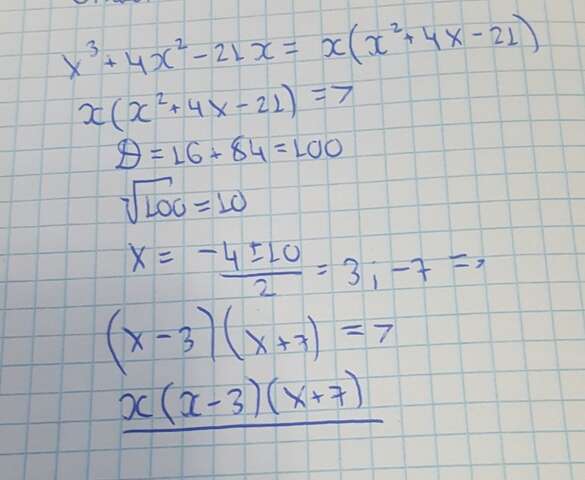 x³ + 4x² - 21x = x(x² + 4x - 21)
x(x² + 4x - 21) =>
D = 16 + 84 = 100
√100 = 10
x = (-4 ± 10)/2 = 3; -7 =>
(x - 3)(x + 7) =>
x(x - 3)(x + 7)